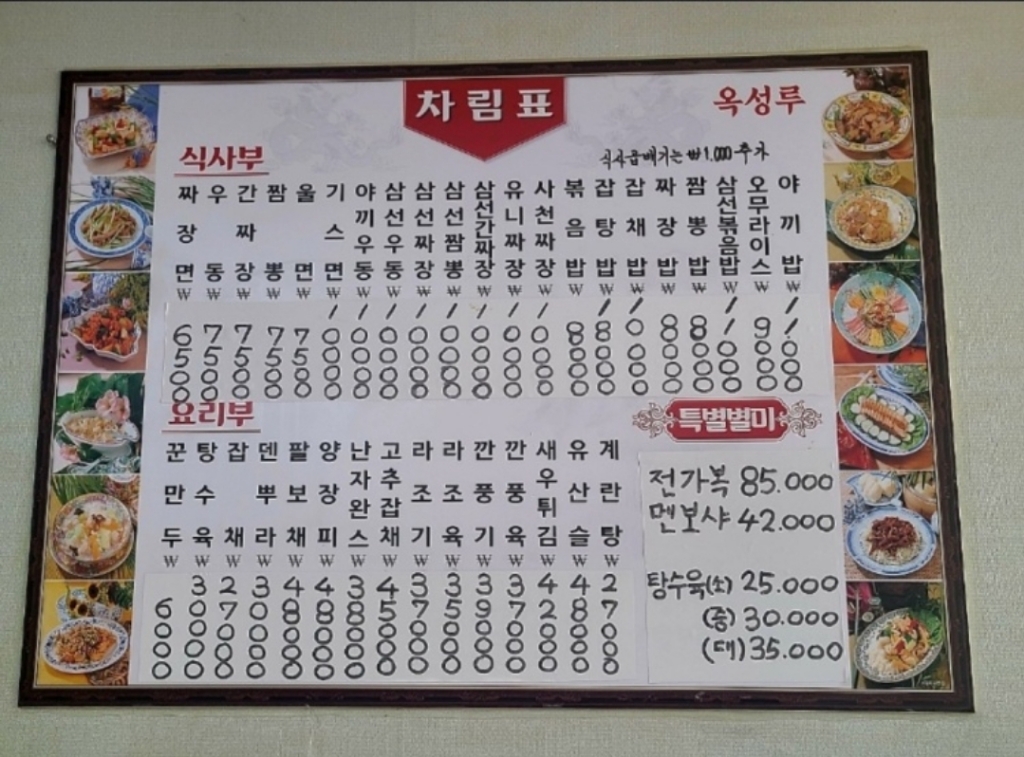 차림표
옥성루
식사부
식사곱배기는 ₩1.000 추가
짜장면 ₩ 6500
우동 ₩ 7500
간짜장 ₩ 7500
짬뽕 ₩ 7500
울면 ₩ 7500
기스면 ₩ 10000
야끼우동 ₩ 10000
삼선우동 ₩ 10000
삼선짜장 ₩ 10000
삼선짬뽕 ₩ 10000
삼선간짜장 ₩ 10000
유니짜장 ₩ 10000
사천짜장 ₩ 10000
볶음밥 ₩ 8000
잡탕밥 ₩ 18000
잡채밥 ₩ 10000
짜장밥 ₩ 8000
짬뽕밥 ₩ 8000
삼선볶음밥 ₩ 11000
오무라이스 ₩ 9000
야끼밥 ₩ 11000
요리부
꾼만두 ₩ 6000
탕수육 ₩ 30000
잡채 ₩ 27000
덴뿌라 ₩ 30000
팔보채 ₩ 48000
양장피 ₩ 48000
난자완스 ₩ 38000
고추잡채 ₩ 45000
라조기 ₩ 37000
라조육 ₩ 35000
깐풍기 ₩ 39000
깐풍육 ₩ 37000
새우튀김 ₩ 42000
유산슬 ₩ 48000
계란탕 ₩ 27000
특별별미
전가복 85.000
멘보샤 42.000
탕수육(소) 25.000
(중) 30.000
(대) 35.000